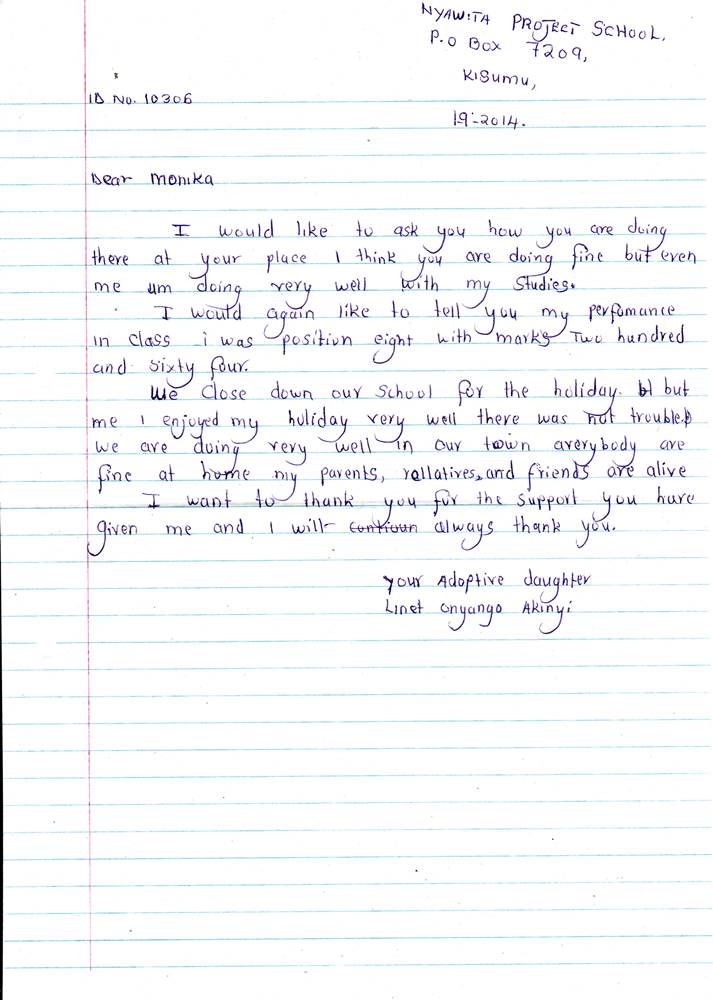 NYAWITA PROJECT SCHOOL,
P.O BOX 7209,
KISUMU,
ID No. 10306
19-2014.
Dear Monika
I would like to ask you how you are doing
there at your place I think you are doing fine but even
me um doing very well with my studies.
I would again like to tell you my perfomance
in class i was position eight with marks Two hundred
and sixty four.
We close down our school for the holiday. but
me I enjoyed my holiday very well there was not trouble
we are doing very well in our town averybody are
fine at home my parents, rellatives, and friends are alive
I want to thank you for the support you have
given me and I will always thank you.
Your Adoptive daughter
Linet Onyango Akinyi